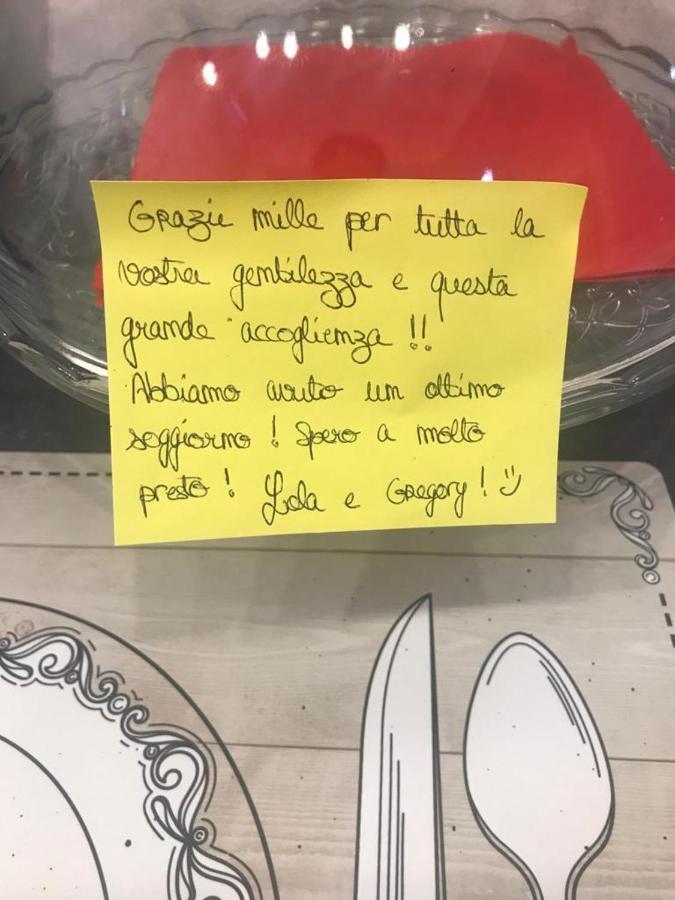 Grazie mille per tutta la
vostra gentilezza e questa
grande accoglienza !!
Abbiamo avuto un ottimo
seggiorno ! Spero a molto
presto ! Lola e Gregory ! :)